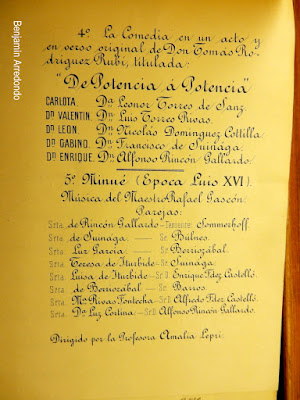 Benjamin Arredondo
4º La Comedia en un acto y
en verso original de Don Tomás Ro-
driguez Rubí, titulada:
"De Potencia á Potencia"
CARLOTA. Dª Leonor Torres de Sanz.
Dn VALENTIN. Dn Luis Torres Rivas.
Dn LEON. Dn Nicolás Dominguez Cottilla.
Dn GABINO. Dn Francisco de Suinaga.
Dn ENRIQUE. Dn Alfonso Rincón Gallardo.
5º Minué (Epoca Luis XVI).
Música del Maestro Rafael Gascón.
Parejas:
Srta. de Rincón Gallardo – Sommerhoff.
Srta. de Suinaga — Sr. Búlnes.
Srta. Luz García — Sr. Berriozábal.
Srta. Teresa de Iturbide – Sr. Suinaga.
Srta. Luisa de Iturbide – Sr. D. Enrique Fdez Castelló.
Srta. de Berriozábal — Sr. Barros.
Srta. Mª Rivas Fontecha – Sr. D. Alfredo Fdez Castelló.
Srta. Dª Luz Cortina – Sr. D. Alfonso Rincón Gallardo.
Dirigido por la Profesora Amalia Lepri.